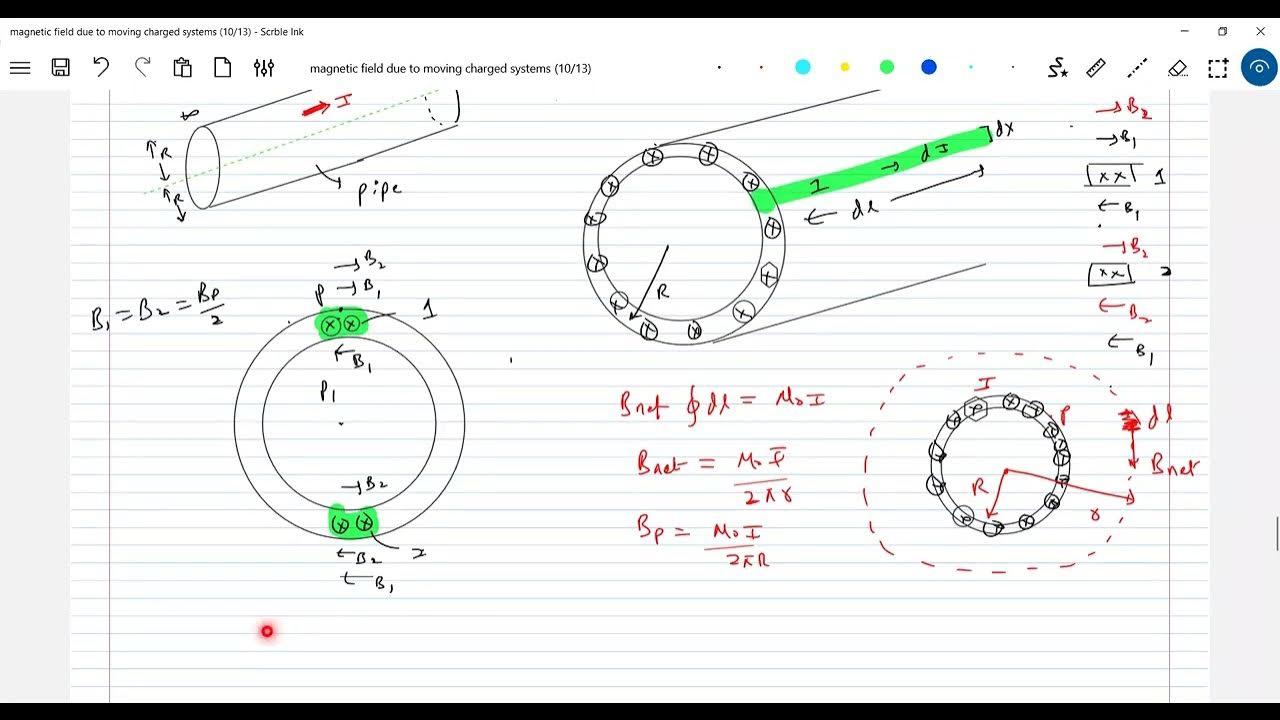 magnetic field due to moving charged systems (10/13) - Scrble Ink
magnetic field due to moving charged systems (10/13)
∞
I
R
R
pipe
I
dI
dx
dl
R
B₂
B₁
xx 1
B₁
B₂
xx 2
B₂
B₁
B₁ = B₂ = Bp/2
B₂
P B₁
1
B₁
P₁
B₂
2
B₂
B₁
Bnet ∮ dl = μ₀ I
Bnet = μ₀ I / 2πr
Bp = μ₀ I / 2πR
I
P
dl
Bnet
R
r